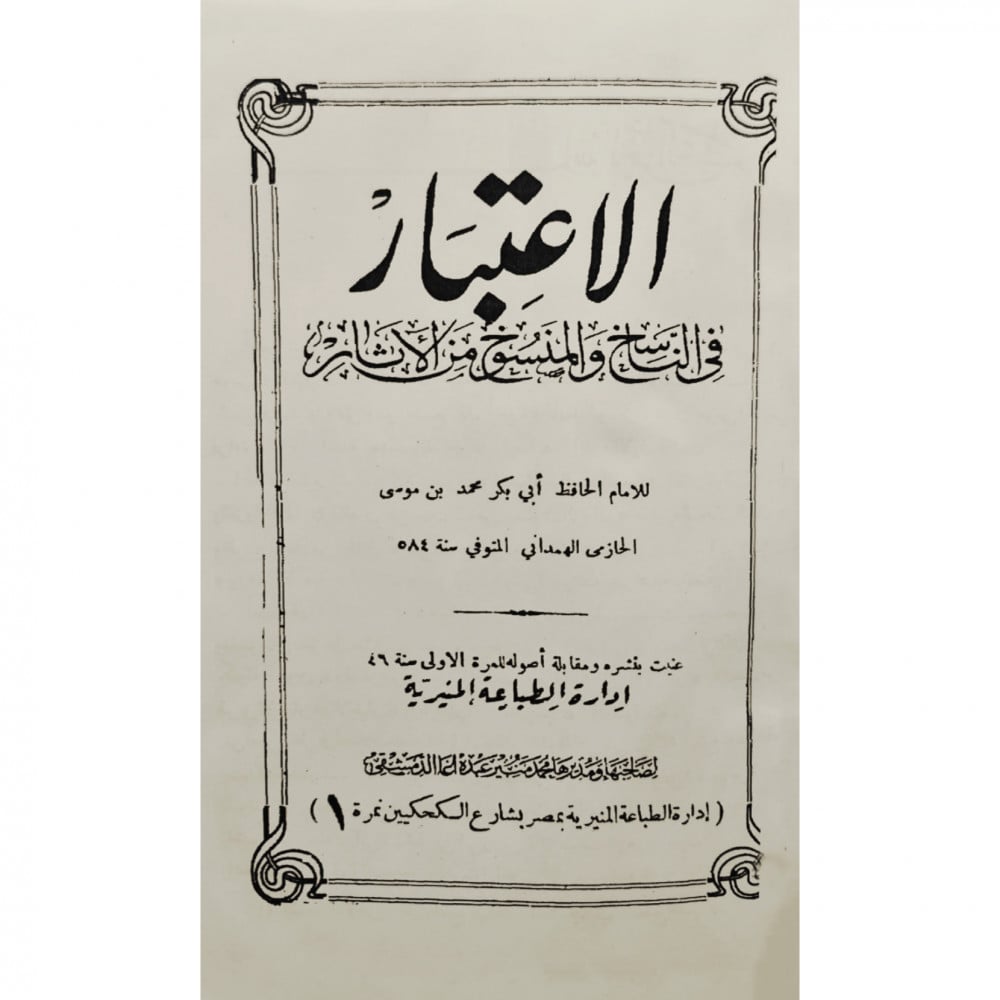 الاعِتبَارْ
فِي النَّاسِخ وَالمَنسُوخ مِنَ الأَثَارْ
للامام الحافظ أبي بكر محمد بن موسى
الحازمى الهمداني المتوفي سنة ٥٨٤
عنيت بنشره ومقابلة أصوله للمرة الاولى سنة ٤٦
إدارة الطباعة المنيرية
لصاحبها ومديرها محمد منير عبده اغا الدمشقي
( إدارة الطباعة المنيرية بمصر بشارع الكحكيين نمرة ١ )